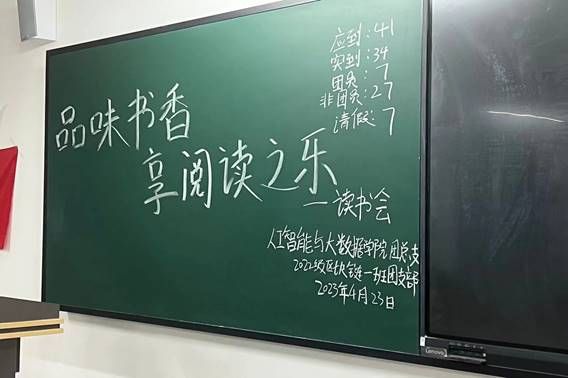 品味书香
享阅读之乐
—读书会
应到:41
实到:34
团员:7
非团员:27
请假:7
人工智能与大数据学院团总支
2022级区块链一班团支部
2023年4月23日
Lenovo